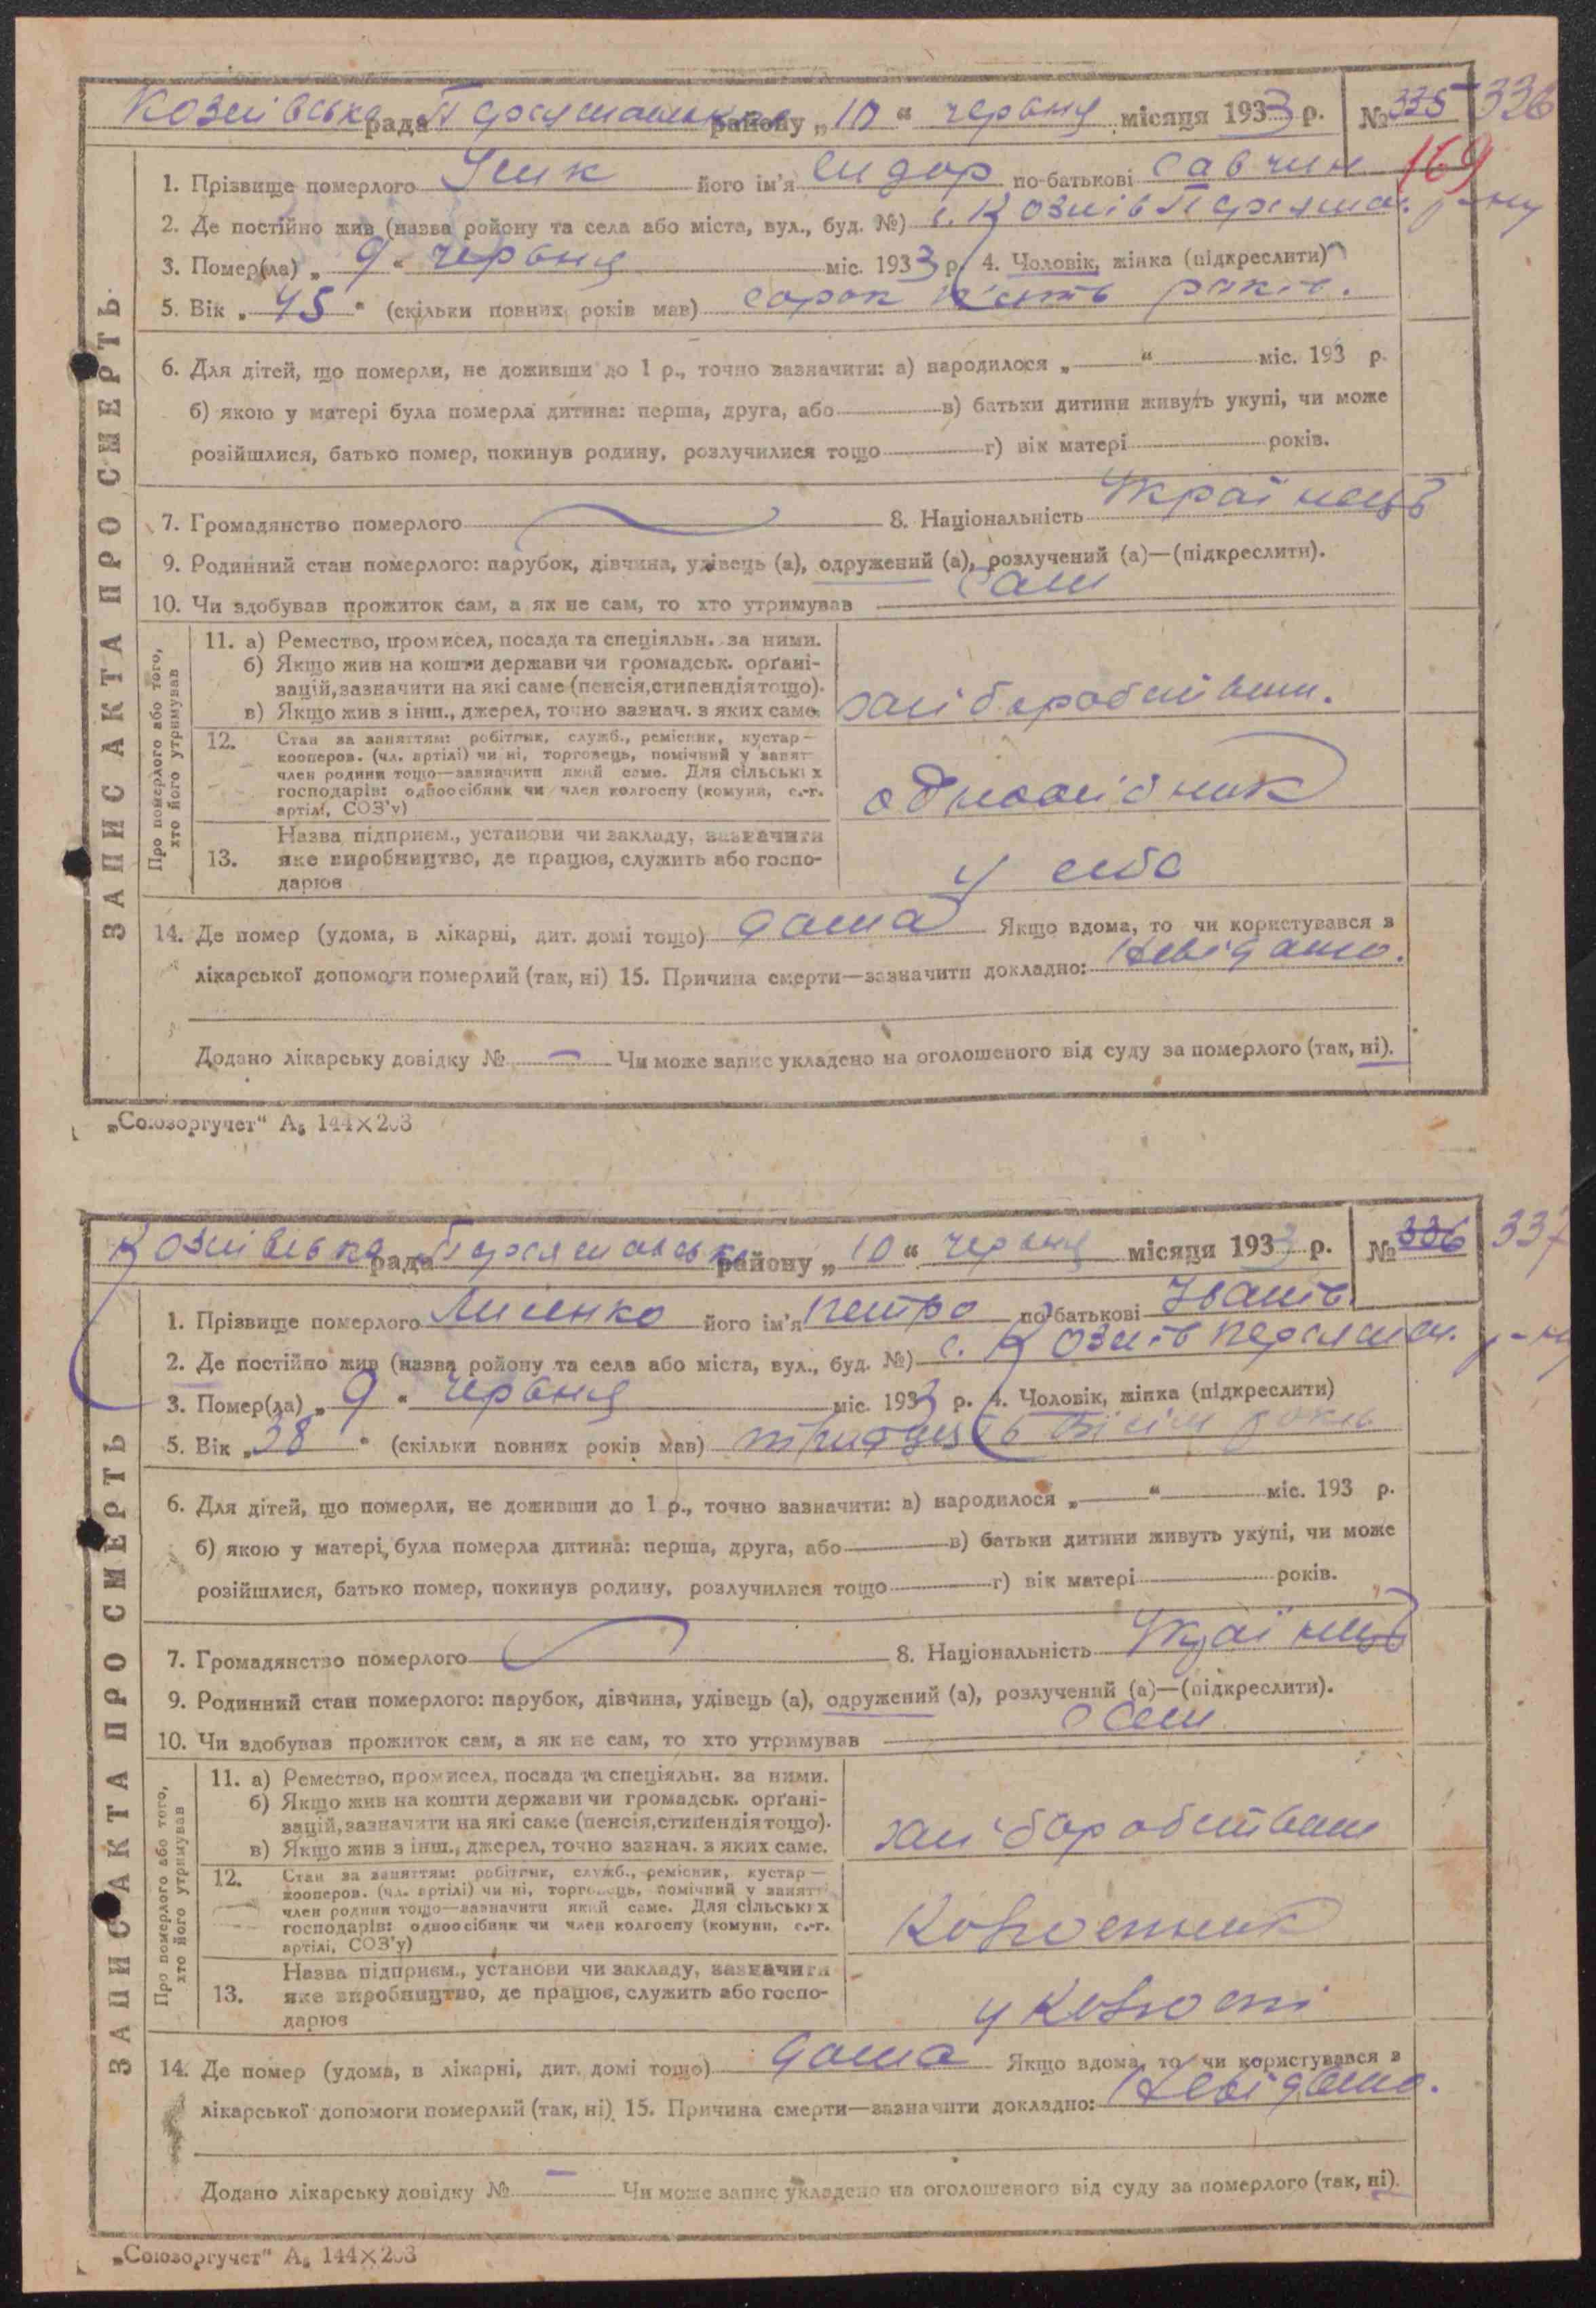 Козіївська рада района „10“ червня місяця 1933 р. № 335 336
169
1. Прізвище померлого його ім'я Сидор по-батькові Савчин
2. Де постійно жив (назва району та села або міста, вул., буд. №) с. Козіїв р-ну
3. Помер(ла) „9“ червня міс. 1933 р. 4. Чоловік, жінка (підкреслити)
5. Вік „45“ (скільки повних років мав) сорок п'ять років.
6. Для дітей, що померли, не доживши до 1 р., точно зазначити: а) народилося „ “ міс. 193 р.
б) якою у матері була померла дитина: перша, друга, або в) батьки дитини живуть укупі, чи може
розійшлися, батько помер, покинув родину, розлучилися тощо г) вік матері років.
7. Громадянство померлого 8. Національність Українець
9. Родинний стан померлого: парубок, дівчина, удівець (а), одружений (а), розлучений (а)—(підкреслити).
10. Чи здобував прожиток сам, а як не сам, то хто утримував Сам
ЗАПИС АКТА ПРО СМЕРТЬ
Про померлого або того, хто його утримував
11. а) Ремество, промисел, посада та спеціяльн. за ними.
б) Якщо жив на кошти держави чи громадськ. орґані-
зацій, зазначити на які саме (пенсія, стипендія тощо).
в) Якщо жив з інш., джерел, точно зазнач. з яких саме.
12. Стан за заняттям: робітник, служб., ремісник, кустар—
кооперов. (чл. артілі) чи ні, торговець, помічний у занят.
член родини тощо—зазначити який саме. Для сільських
господарів: одноосібник чи член колгоспу (комуни, с.-г.
артілі, СОЗ'у)
одноосібник
13. Назва підприєм., установи чи закладу, зазначити
яке виробництво, де працює, служить або госпо-
дарює
у себе
14. Де помер (удома, в лікарні, дит. домі тощо) дома Якщо вдома, то чи користувався з
лікарської допомоги померлий (так, ні) 15. Причина смерти—зазначити докладно: Невідомо.
Додано лікарську довідку № — Чи може запис укладено на оголошеного від суду за померлого (так, ні).
„Союзоргучет“ А₅ 144×203
Козіївська рада района „10“ червня місяця 1933 р. № 336 337
1. Прізвище померлого Лисенко його ім'я Петро по-батькові Іванів
2. Де постійно жив (назва району та села або міста, вул., буд. №) с. Козіїв р-ну
3. Помер(ла) „9“ червня міс. 1933 р. 4. Чоловік, жінка (підкреслити)
5. Вік „38“ (скільки повних років мав) тридцять вісім років
6. Для дітей, що померли, не доживши до 1 р., точно зазначити: а) народилося „ “ міс. 193 р.
б) якою у матері була померла дитина: перша, друга, або в) батьки дитини живуть укупі, чи може
розійшлися, батько помер, покинув родину, розлучилися тощо г) вік матері років.
7. Громадянство померлого 8. Національність Українець
9. Родинний стан померлого: парубок, дівчина, удівець (а), одружений (а), розлучений (а)—(підкреслити).
10. Чи здобував прожиток сам, а як не сам, то хто утримував Сам
ЗАПИС АКТА ПРО СМЕРТЬ
Про померлого або того, хто його утримував
11. а) Ремество, промисел, посада та спеціяльн. за ними.
б) Якщо жив на кошти держави чи громадськ. орґані-
зацій, зазначити на які саме (пенсія, стипендія тощо).
в) Якщо жив з інш., джерел, точно зазнач. з яких саме.
12. Стан за заняттям: робітник, служб., ремісник, кустар—
кооперов. (чл. артілі) чи ні, торговець, помічний у занятті
член родини тощо—зазначити який саме. Для сільських
господарів: одноосібник чи член колгоспу (комуни, с.-г.
артілі, СОЗ'у)
Колгоспник
13. Назва підприєм., установи чи закладу, зазначити
яке виробництво, де працює, служить або госпо-
дарює
у колгоспі
14. Де помер (удома, в лікарні, дит. домі тощо) дома Якщо вдома, то чи користувався з
лікарської допомоги померлий (так, ні) 15. Причина смерти—зазначити докладно: Невідомо.
Додано лікарську довідку № — Чи може запис укладено на оголошеного від суду за померлого (так, ні).
„Союзоргучет“ А₅ 144×203